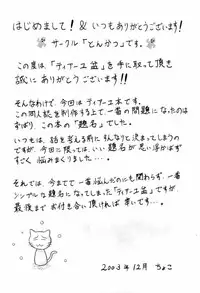 はじめまして! & いつもありがとうございます!
サークル「とんかつ」です。
この度は、「ティアーユ盆」を手に取って頂き
誠にありがとうございます!!
そんなわけで、今回はティアーユ本です。
この同人誌を制作する上で、一番の問題になったのは
ずばり、この本の「題名」でした。
いつもは、話を考える前にすんなりと決まってしまうの
ですが、今回に限っては、いい題名が思い浮かばず
すごく悩みまくりました…。
それでは、今までで一番悩んだのにも関わらず、一番
シンプルな題名になってしまった「ティアーユ盆」ですが、
最後までお付き合い頂ければ幸いです…。
2003年12月 ちょこ